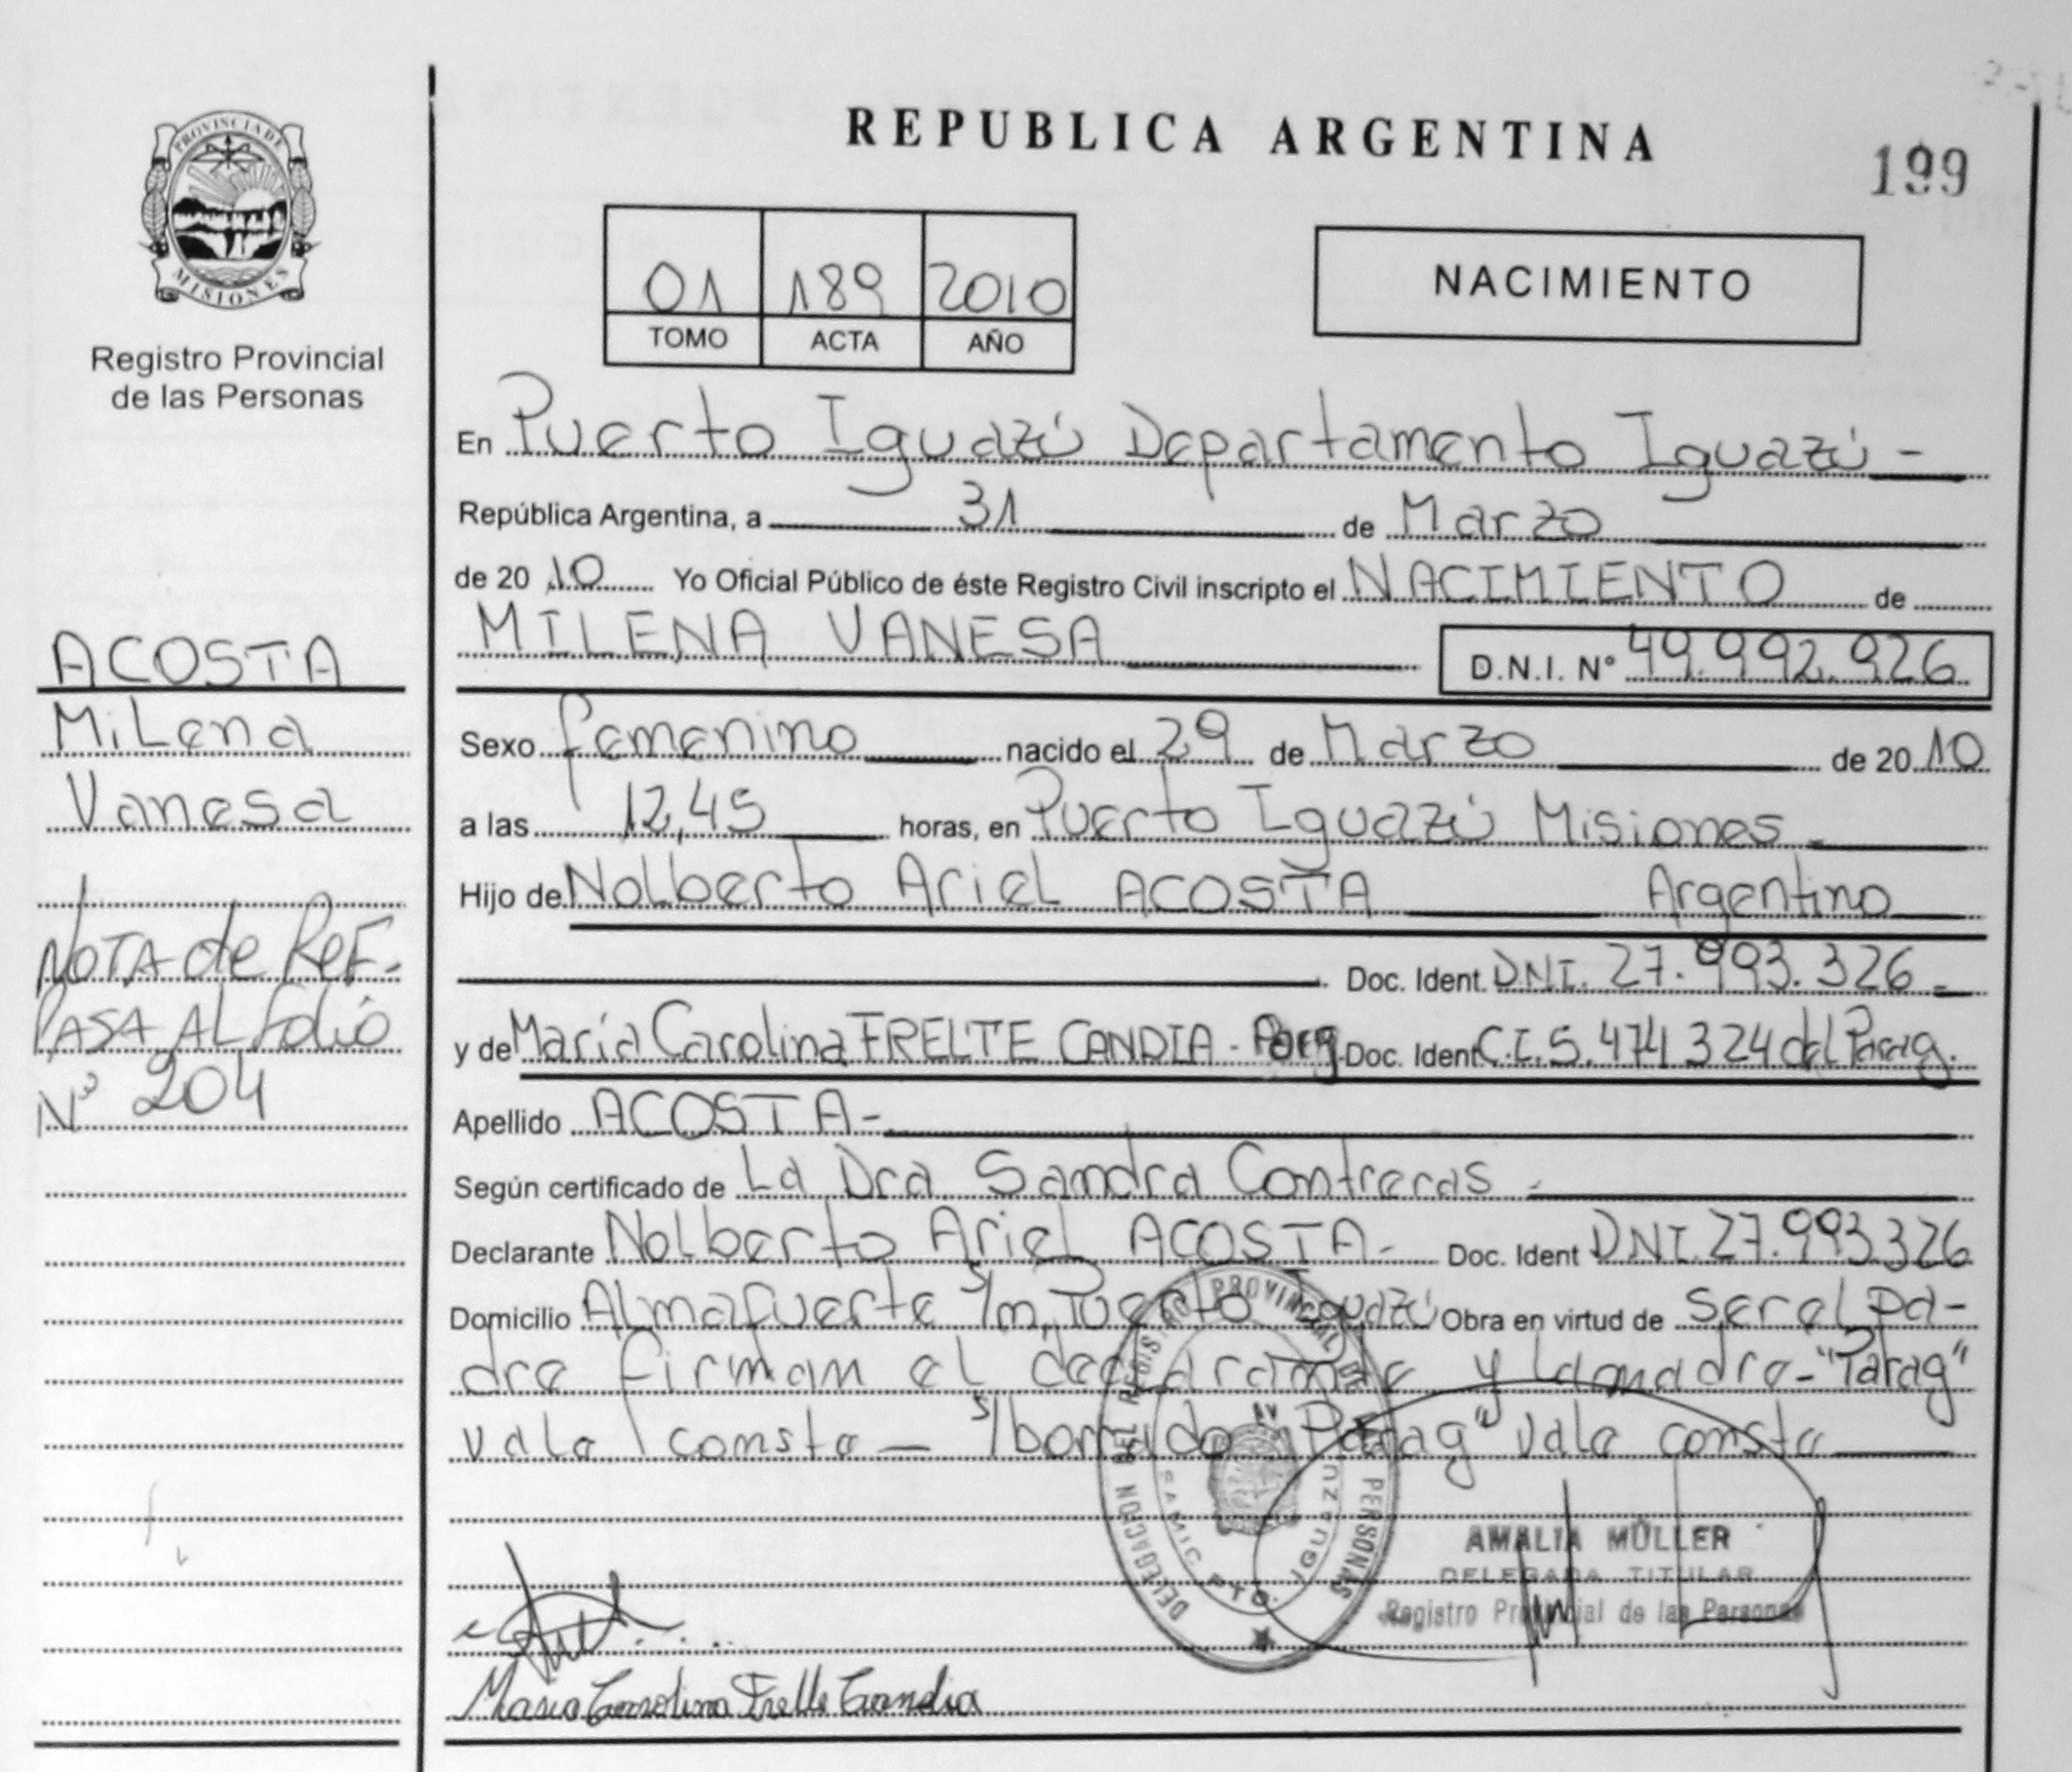 REPUBLICA ARGENTINA
199
PROVINCIA DE
MISIONES
Registro Provincial
de las Personas
01 189 2010
TOMO ACTA AÑO
NACIMIENTO
En Puerto Iguazú Departamento Iguazú -
República Argentina, a 31 de Marzo
de 20 10 Yo Oficial Público de éste Registro Civil inscripto el NACIMIENTO de
MILENA VANESA D.N.I. Nº 49.992.926
Sexo femenino nacido el 29 de Marzo de 20 10
a las 12,45 horas, en Puerto Iguazú Misiones -
Hijo de Nolberto Ariel ACOSTA Argentino
Doc. Ident. DNI. 27.993.326 -
y de María Carolina FRELTE CANDIA - Parag. Doc. Ident C.I. 5.474 324 del Parag.
Apellido ACOSTA -
Según certificado de La Dra Sandra Contreras -
Declarante Nolberto Ariel ACOSTA - Doc. Ident DNI. 27.993 326
Domicilio Almafuerte s/n, Puerto Iguazú Obra en virtud de ser el pa-
dre firman el declarante y la madre - "Parag"
vale conste — s/borrado "Parag" vale conste
ACOSTA
Milena
Vanesa
NOTA de REF -
PASA AL folio
Nº 204
DELEGACION DEL REGISTRO PROVINCIAL DE LAS PERSONAS
SAMIC PTO. IGUAZU
AMALIA MÜLLER
DELEGADA TITULAR
Registro Provincial de las Personas
Maria Carolina Frelte Candia